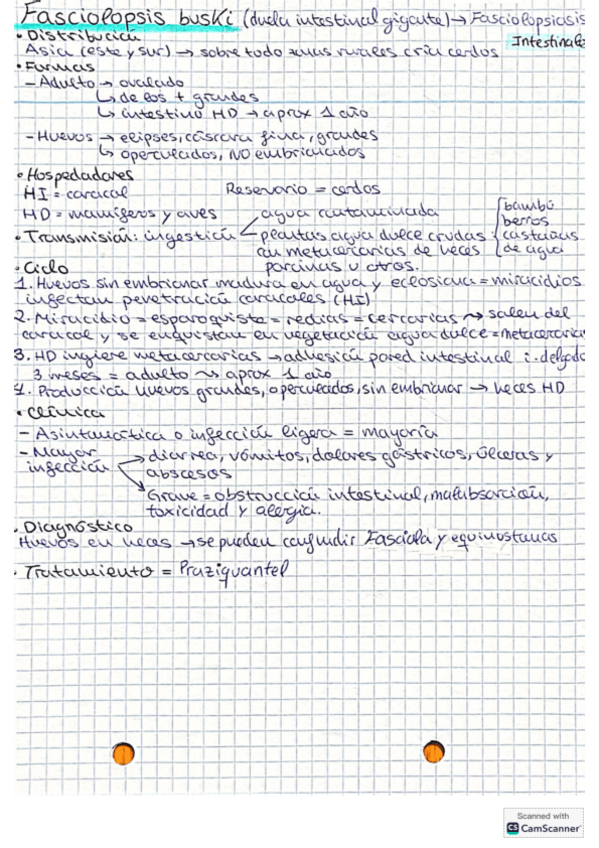 Fasciolopsis buski (duela intestinal gigante) → Fasciolopsiasis
• Distribución
Intestinales
Asia (este y sur) → sobre todo zonas rurales cría cerdos
• Formas
– Adulto → ovalado
↳ de los + grandes
↳ intestino HD → aprox 1 año
– Huevos → elipses, cáscara fina, grandes
↳ operculados, NO embrionados
• Hospedadores
HI = caracol
Reservorio = cerdos
HD = mamíferos y aves
• Transmisión: ingestión
agua contaminada
plantas agua dulce crudas
con metacercarias de heces
porcinas u otros.
bambú
berros
castañas
de agua
• Ciclo
1. Huevos sin embrionar madura en agua y eclosiona = miracidios
infectan penetración caracoles (HI)
2. Miracidio = esporoquiste = redias = cercarias → salen del
caracol y se enquistan en vegetación agua dulce = metacercaria
3. HD ingiere metacercarias → adhesión pared intestinal i. delgado
3 meses = adulto → aprox 1 año
4. Producción huevos grandes, operculados, sin embrionar → heces HD
• Clínica
– Asintomática o infección ligera = mayoría
– Mayor
infección
→ diarrea, vómitos, dolores gástricos, úlceras y
abscesos
Grave = obstrucción intestinal, malabsorción,
toxicidad y alergia.
• Diagnóstico
Huevos en heces → se pueden confundir Fasciola y equinostomas
• Tratamiento = Praziquantel
Scanned with
CS CamScanner